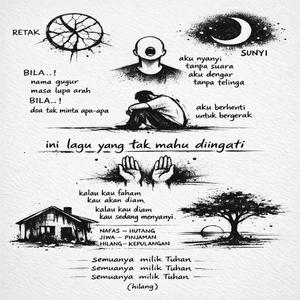 RETAK
SUNYI
aku nyanyi
tanpa suara
aku dengar
tanpa telinga
BILA..!
nama gugur
masa lupa arah
BILA..!
doa tak minta apa-apa
aku berhenti
untuk bergerak
ini lagu yang tak mahu diingati
kalau kau faham
kau akan diam
kalau kau diam
kau sedang menyanyi.
NAFAS – HUTANG
JIWA – PINJAMAN
HILANG – KEPULANGAN
Semuanya milik Tuhan
Semuanya milik Tuhan
Semuanya milik Tuhan
(hilang)